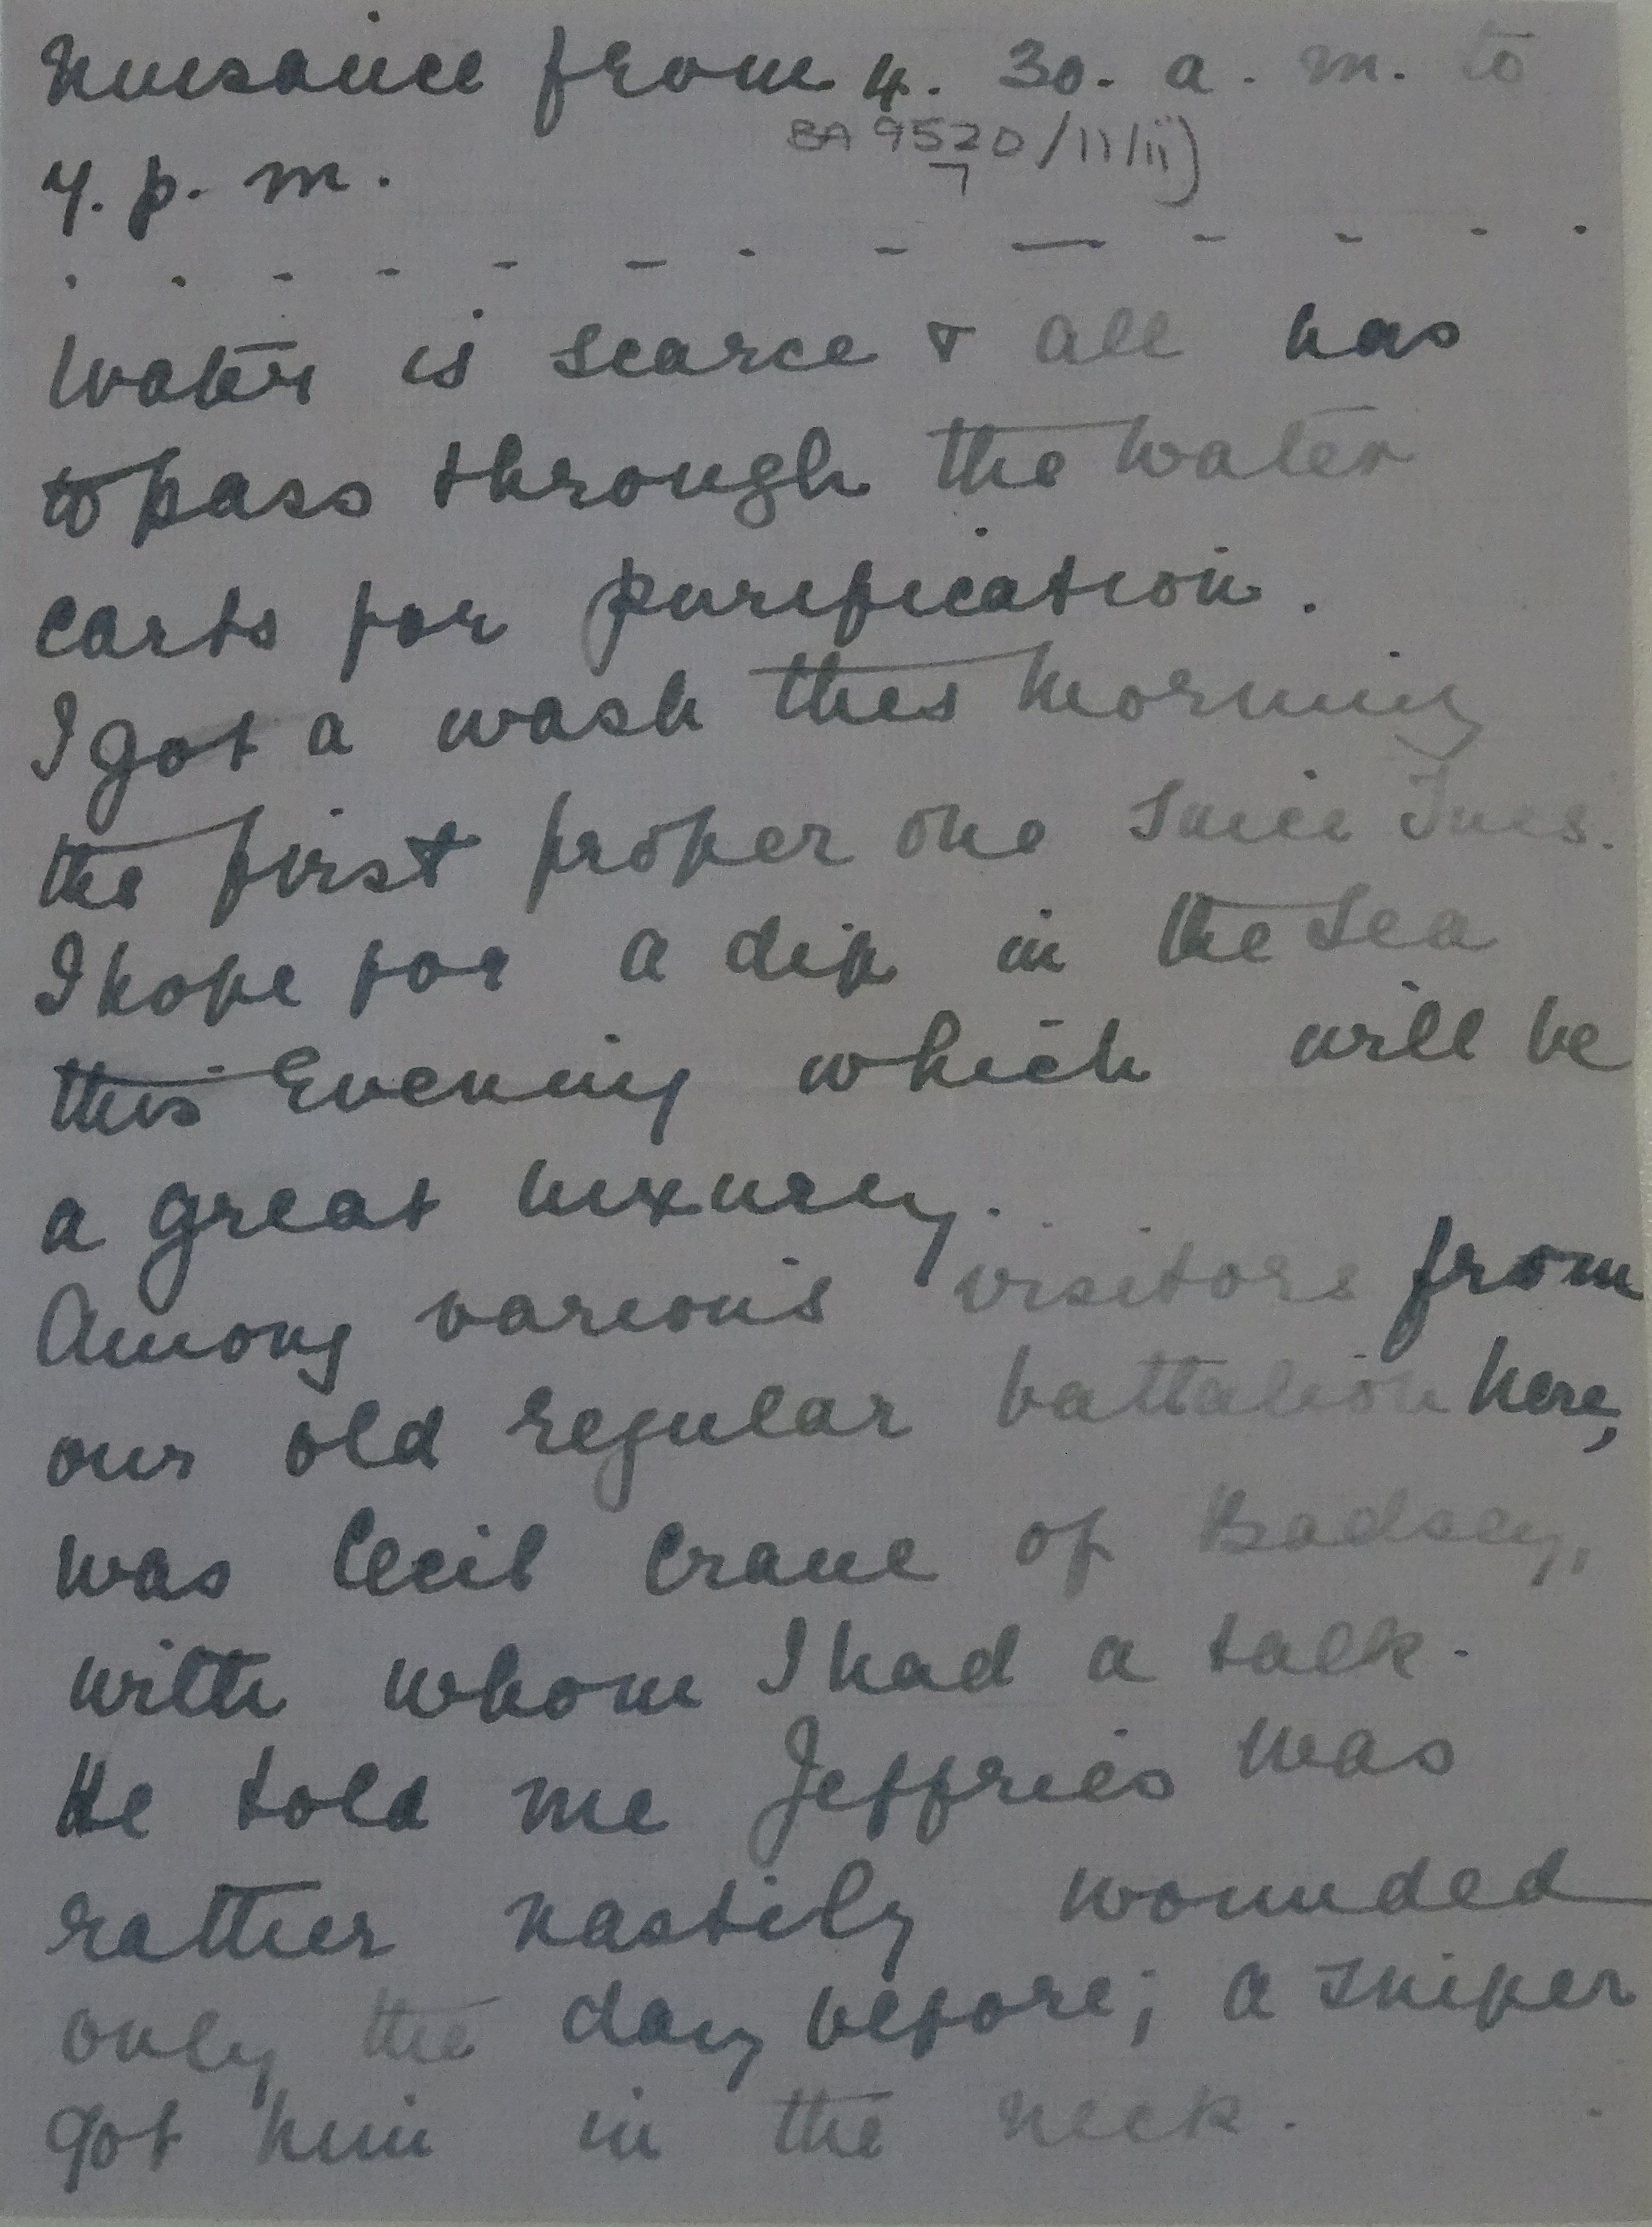 nuisance from 4. 30. a. m. to
BA 9520/11/ii)
7
7. p. m.
. . . - - — - - — - - - .
Water is scarce & all has
to pass through the water
carts for purification.
I got a wash this morning
the first proper one since Tues.
I hope for a dip in the sea
this Evening which will be
a great luxury. . .
Among various visitors from
our old regular battalion here,
was Cecil Crane of Badsey,
with whom I had a talk.
He told me Jeffries was
rather nastily wounded
only the day before; a sniper
got him in the neck.